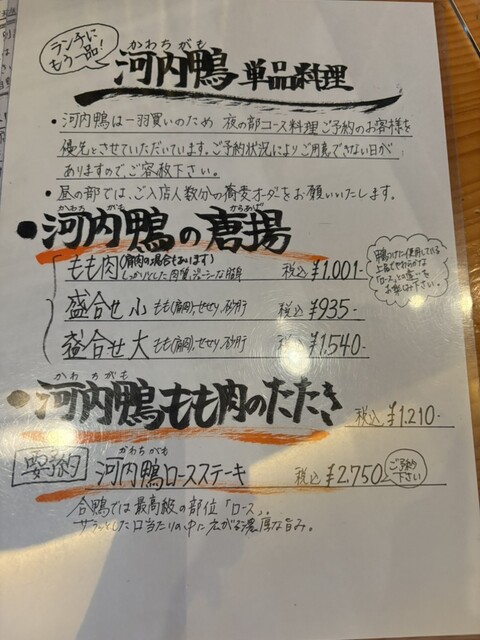 ランチに
もう一品!
かわちがも
河内鴨 単品料理
・河内鴨は一羽買いのため 夜の部コース料理ご予約のお客様を
優先とさせていただいています。ご予約状況によりご用意できない日が
ありますので、ご容赦下さい。
・昼の部では、ご入店人数分の蕎麦オーダーをお願いいたします。
かわちがも からあげ
●河内鴨の唐揚
もも肉(胸肉の場合もあります)
しっかりとした肉質、ジューシーな脂身 税込 ¥1,001-
鴨つけに使用している
上品でやわらかな
「ロース」との違いを
お楽しみ下さい。
盛合せ 小 もも(胸肉)、せせり、砂肝 税込 ¥935-
盛合せ 大 もも(胸肉)、せせり、砂肝 税込 ¥1,540-
かわちがも
●河内鴨もも肉のたたき 税込 ¥1,210-
要予約
かわちがも
河内鴨ロースステーキ 税込 ¥2,750
ご予約
下さい
合鴨では最高級の部位「ロース」。
サラッとした口当たりの中に広がる濃厚な旨み。